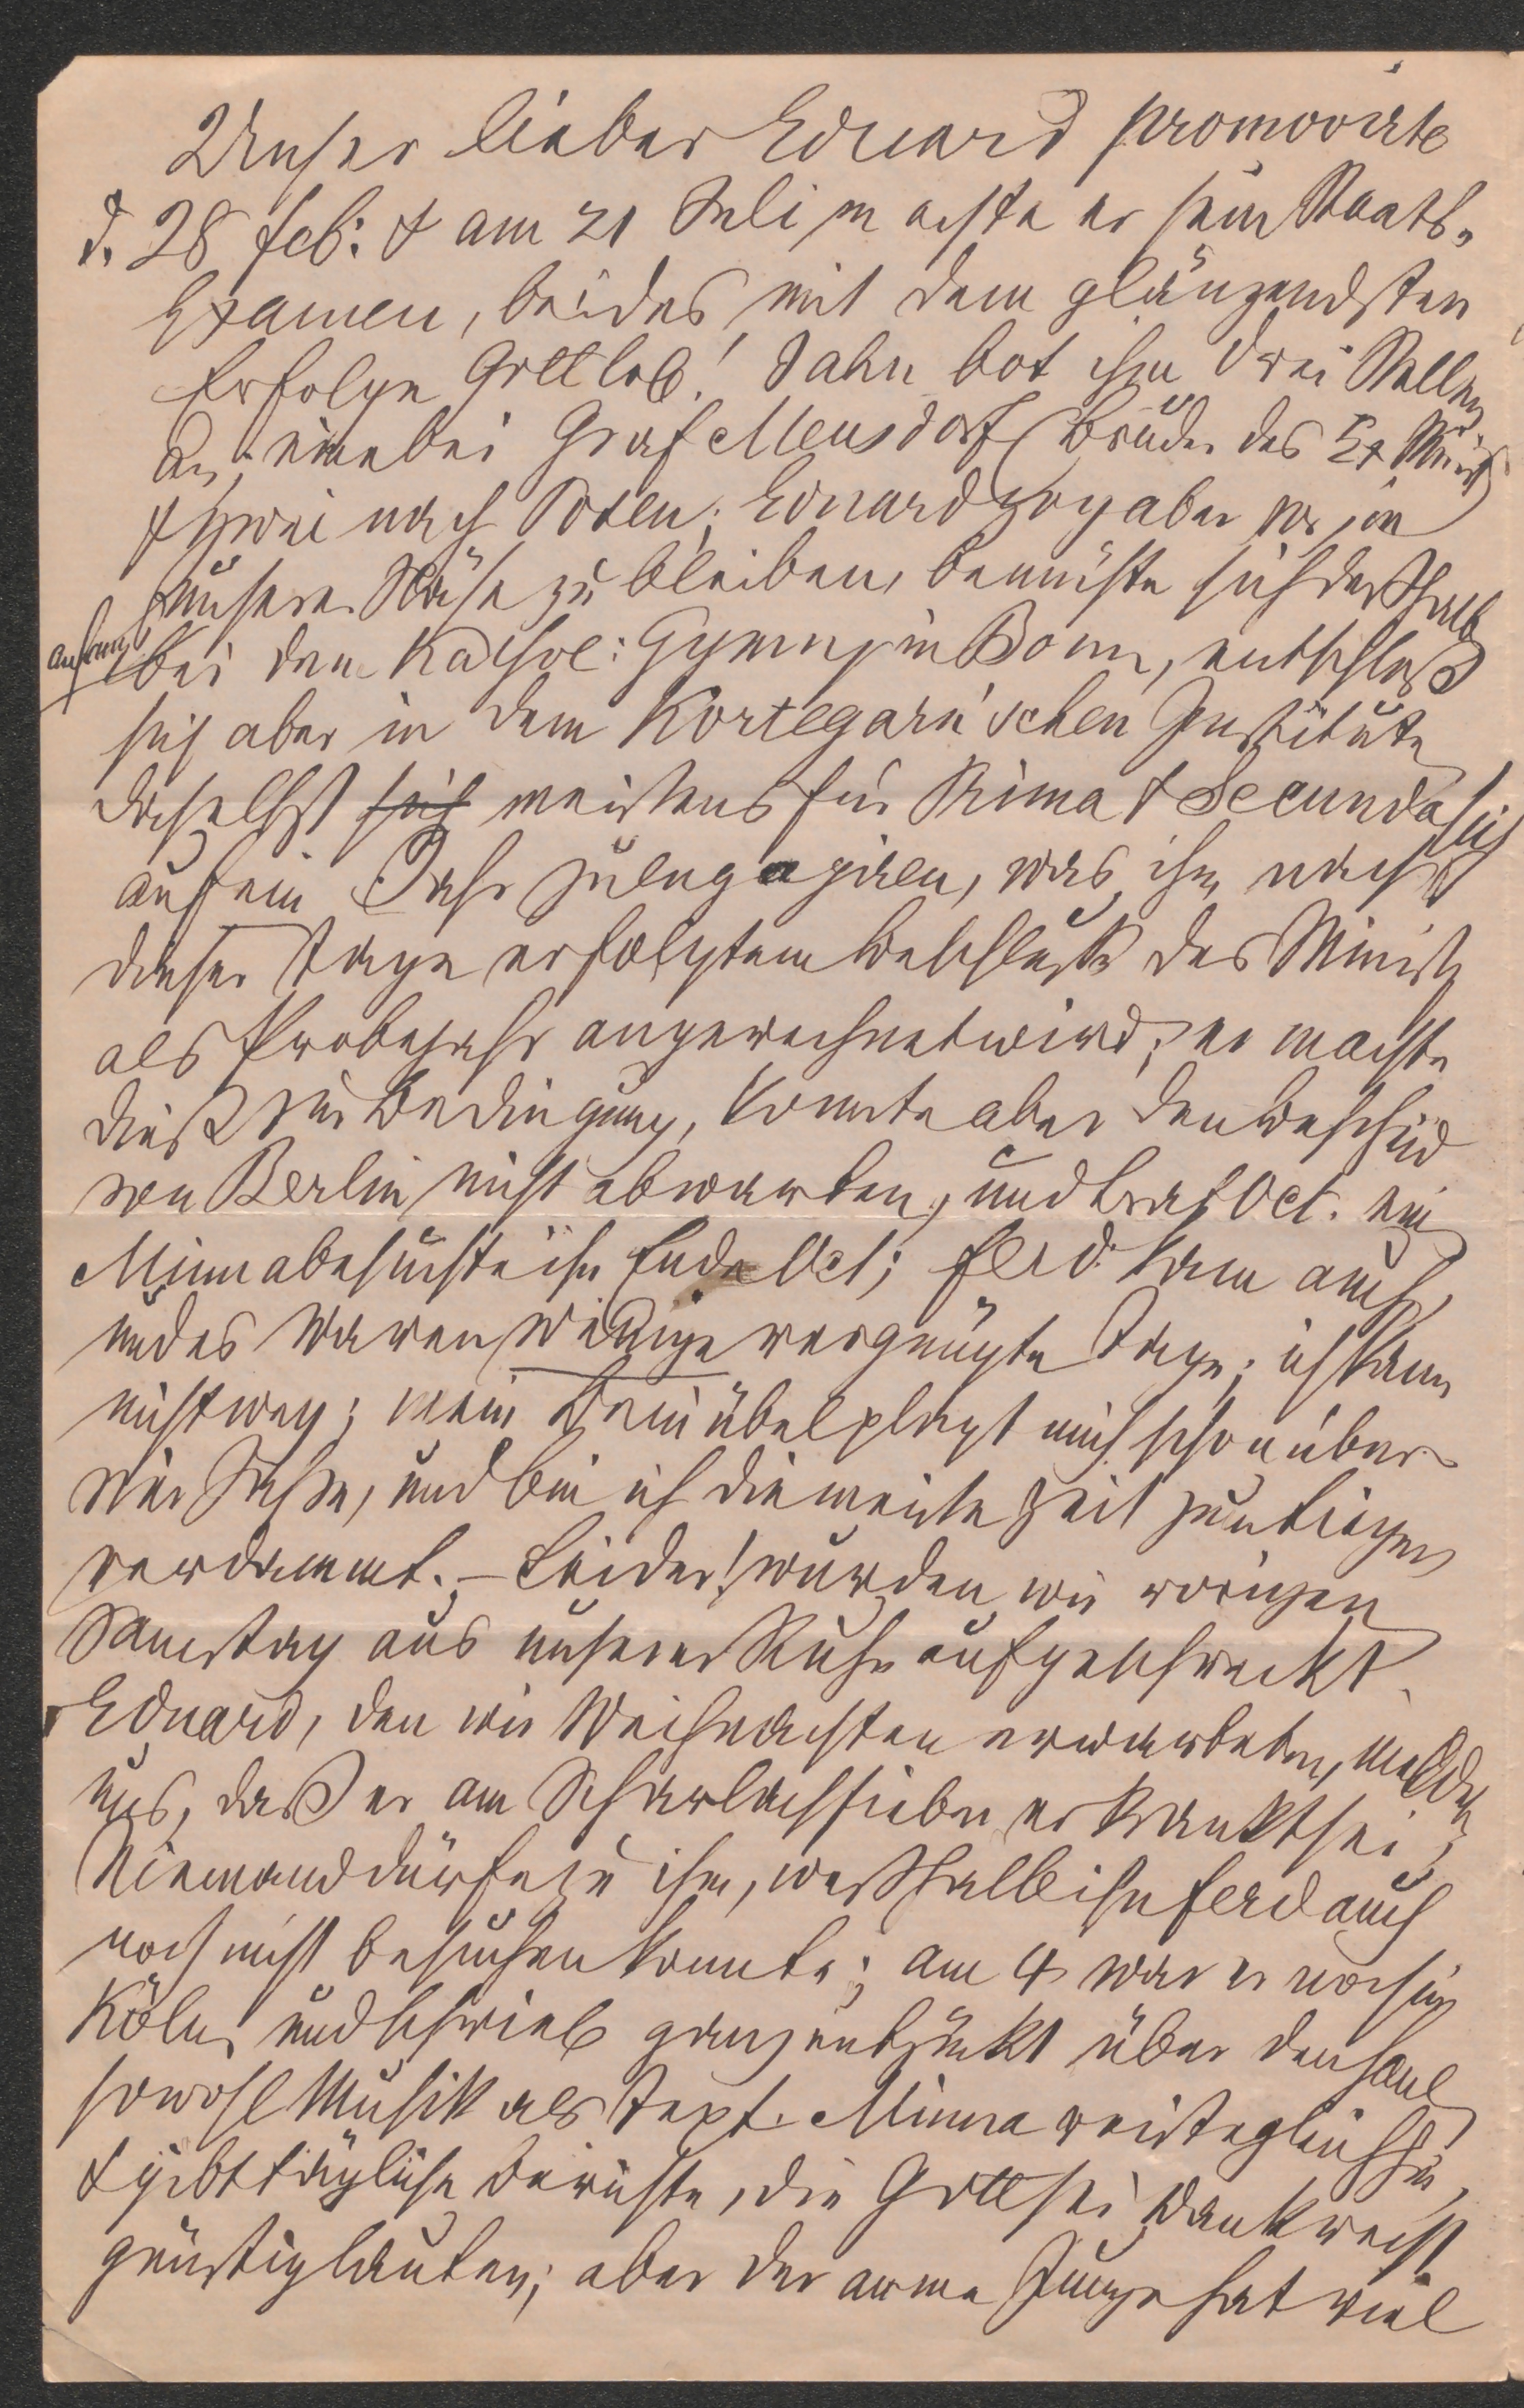 Unser lieber Eduard promovirte
d. 28 feb: & am 21 Juli machte er sein Staats-
Examen, beides mit dem glänzendsten
Erfolge Gottlob! Jahn bot ihm drei Stellen
an, eine bei Graf Mensdorf (Bruder des Ex Minist)
& zwei nach Polen; Eduard zog aber vor, in
unserer Nähe zu bleiben, bemühte sich deßhalb
anfangs bei dem kathol: Gymnas in Bonn, entschloß
sich aber in dem Kortegarn'schen Institute
daselbst sich meistens für Prima & Secunda sich
auf ein Jahr zu engagiren, was ihm nach
dieser Tage erfolgtem Beschluß des Minist
als Probejahr angerechnet wird; er machte
dieß zur Bedingung, konnte aber den Bescheid
von Berlin nicht abwarten, und trat Oct. ein
Minna besuchte ihn Ende Oct; Ferd. kam auch,
und es waren einige vergnügte Tage; ich kann
nicht weg; mein Beinübel plagt mich schon über
vier Jahre, und bin ich die meiste Zeit zum Liegen
verdammt. – Leider! wurden wir vorigen
Samstag aus unserer Ruhe aufgeschreckt.
Eduard, den wir Weihnachten erwarteten, meldete
uns, daß er am Scharlachfieber erkrankt sei;
Niemand dürfe zu ihm, weßhalb ihn Ferd auch
noch nicht besuchen konnte; am 4 war er noch in
Köln, und schrieb ganz entzückt über den Saul
sowohl Musik als Text. Minna reiste gleich hin,
& gibt tägliche Berichte, die Gott sei Dank recht
günstig lauten; aber der arme Junge hat viel